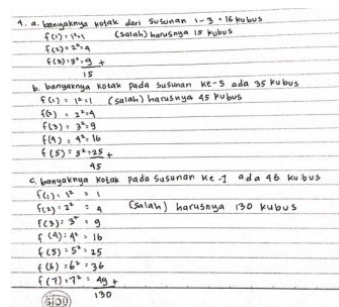 4. a. banyaknya kotak dari susunan 1-3 = 16 kubus
f(1) = 1²=1 (salah) harusnya 15 kubus
f(2) = 2²=4
f(3) = 3²=9 +
15
b. banyaknya kotak pada susunan ke-5 ada 35 kubus
f(1) = 1²=1 (salah) harusnya 45 kubus
f(2) = 2²=4
f(3) = 3²=9
f(4) = 4²=16
f(5) = 5²=25 +
45
c. banyaknya kotak pada susunan ke-7 ada 46 kubus
f(1) = 1² = 1
f(2) = 2² = 4 (salah) harusnya 130 kubus
f(3) = 3² = 9
f(4) = 4² = 16
f(5) = 5² = 25
f(6) = 6² = 36
f(7) = 7² = 49 +
130
SIDU